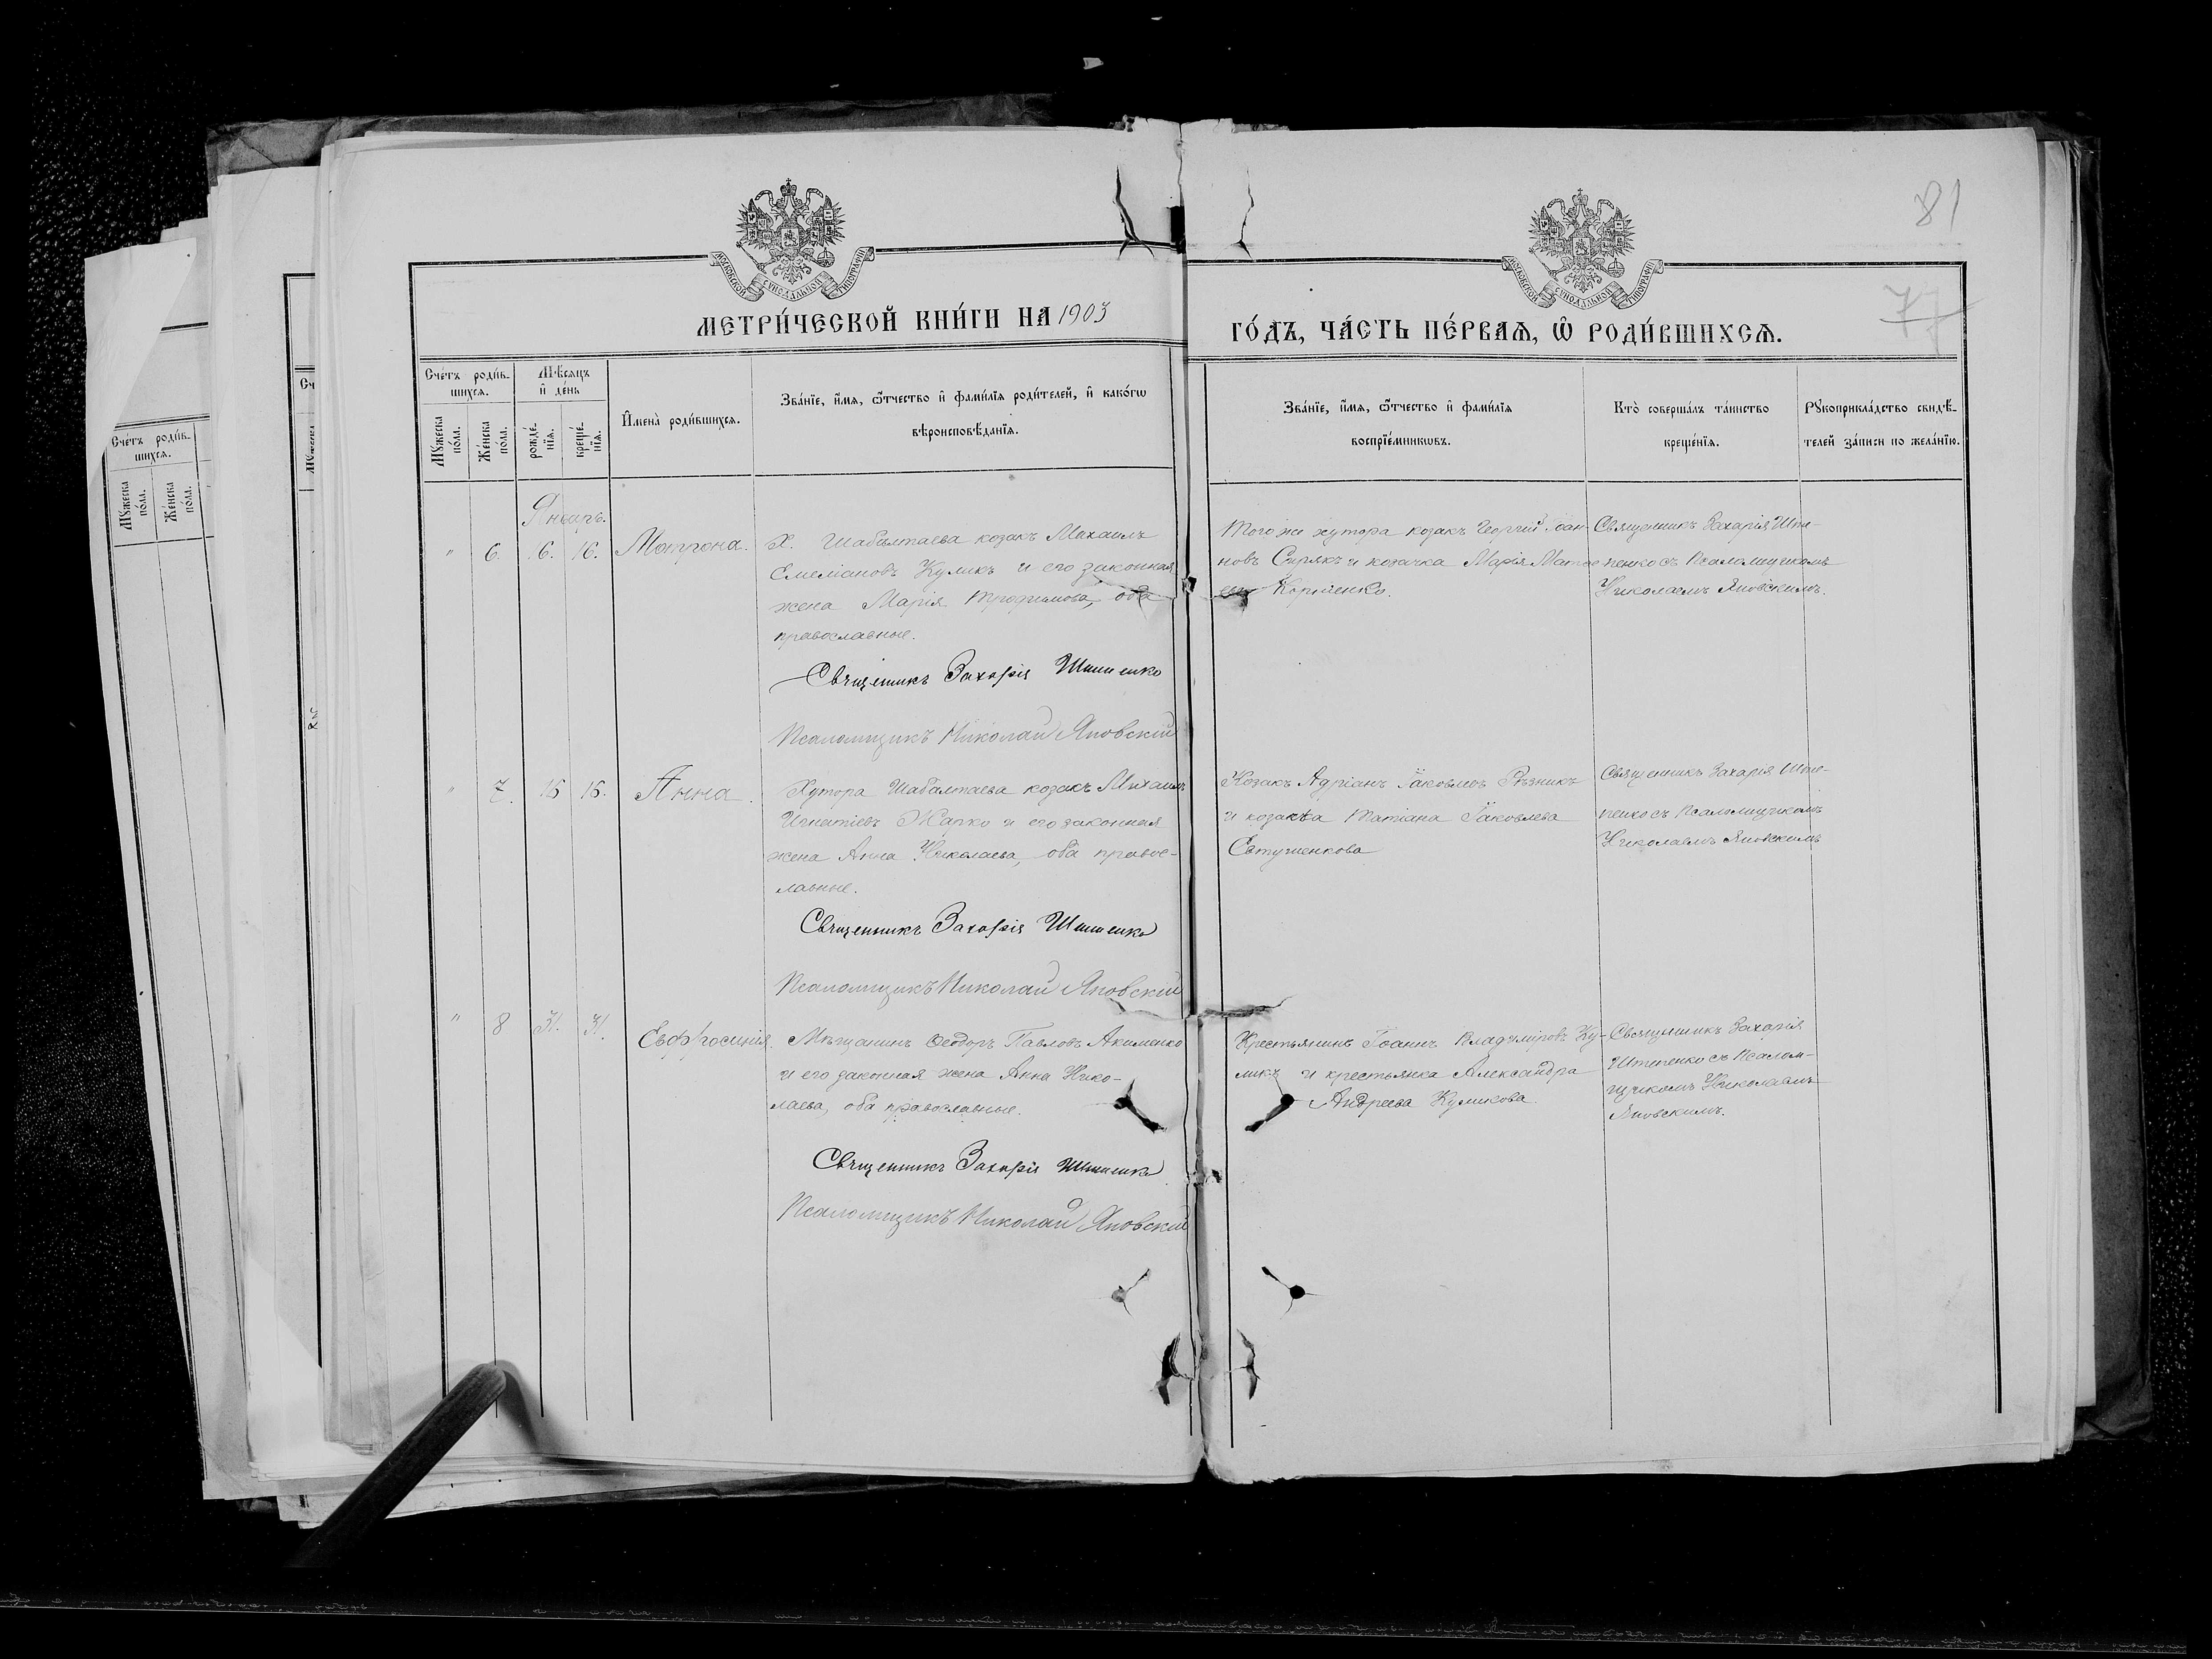 81
77
МОСКОВСКОЙ СѴНОДАЛЬНОЙ ТИПОГРАФІИ
МОСКОВСКОЙ СѴНОДАЛЬНОЙ ТИПОГРАФІИ
МЕТРИ́ЧЕСКОЙ КНИ́ГИ НА 1903
ГО́ДЪ, ЧА́СТЬ ПЕ́РВАѦ, Ѡ҃ РОДИ́ВШИХСѦ.
Сче́тъ роди́в-
шихсѧ.
Мѣ́сѧцъ
и҆ де́нь
Мꙋ́жеска
по́ла.
Же́нска
по́ла.
рожде́-
нїѧ.
креще́-
нїѧ.
И҆мена̀ роди́вшихсѧ.
Зва́нїе, и҆́мѧ, ѻ҆́тчество и҆ фами́лїѧ роди́телей, и҆ како́гѡ
вѣроисповѣ́данїѧ.
Зва́нїе, и҆́мѧ, ѻ҆́тчество и҆ фами́лїѧ
воспрїе́мникѡвъ.
Кто̀ соверша́лъ та́инство
креще́нїѧ.
Рꙋкоприкла́дство свидѣ́-
телей за́писи по жела́нїю.
Сче́тъ роди́в-
шихсѧ.
Мꙋ́жеска
по́ла.
Же́нска
по́ла.
Январь.
" 6. 16. 16. Матрона.
Х. Шабалтаева козакъ Михаилъ
Емеліановъ Куликъ и его законная
жена Марія Трофимова, оба
православные.
Священникъ Захарія Шпиленко
Псаломщикъ Николай Яновский
Того же хутора козакъ Георгій
новъ Сирякъ и козачка Марія
Корніенко.
Священникъ Захарія
пенко съ Псаломщикомъ
Николаемъ Яновскимъ.
" 7. 16 16. Анна.
Хутора Шабалтаева козакъ Михаилъ
Игнатіевъ Жарко и его законная
жена Анна Николаева, оба правос-
лавные.
Священникъ Захарія
Псаломщикъ Николай Яновский
Козакъ Адріанъ Іаковлевъ Рѣзникъ
и козачка Татіана Іаковлева
Евтушенкова
Священникъ Захарія
пенко съ Псаломщикомъ
Николаемъ Яновскимъ
" 8 31. 31. Евфросинія.
Мѣщанинъ Ѳеодоръ Павловъ Акименко
и его законная жена Анна Нико-
лаева, оба православные.
Священникъ Захарія
Псаломщикъ Николай Яновский
Крестьянинъ Іоаннъ Владиміровъ Ку-
ликъ и крестьянка Александра
Андреева Куликова.
Священникъ Захарія
съ Псалом-
щикомъ Николаемъ
Яновскимъ.